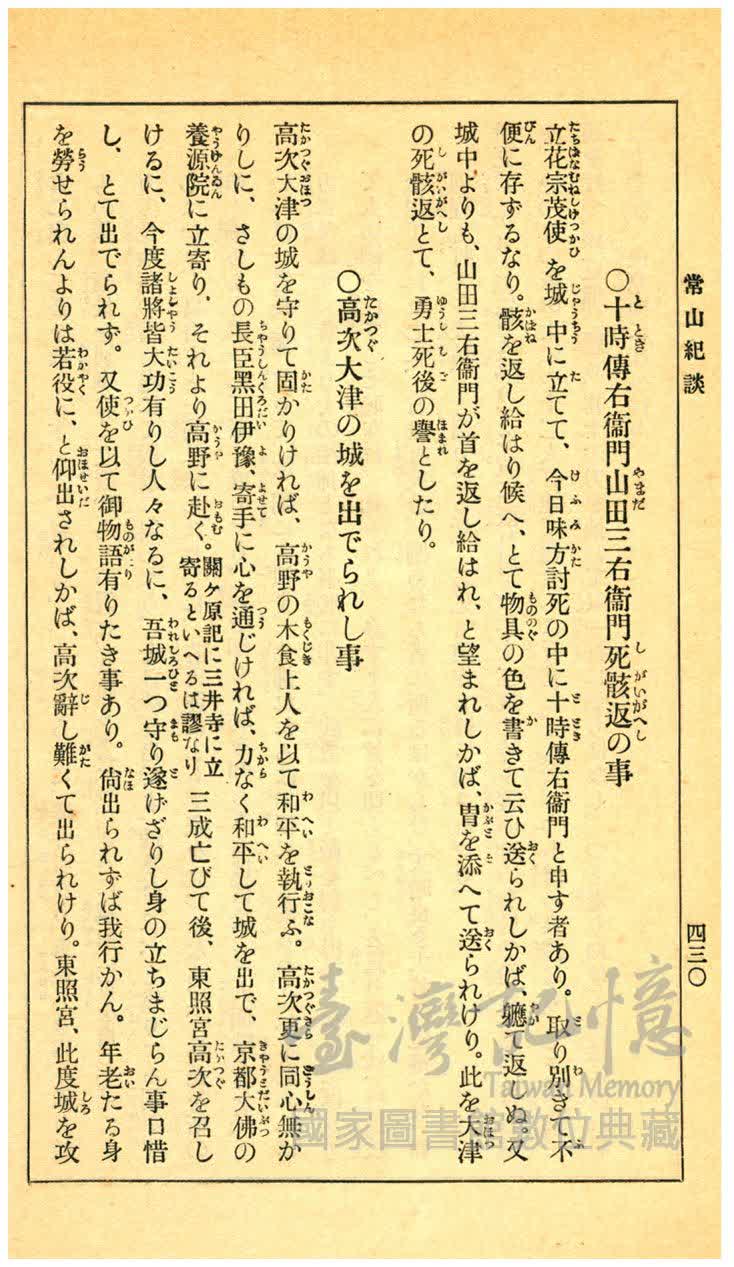 常山紀談
四三〇
〇十時傳右衞門山田三右衞門死骸返の事
立花宗茂使を城中に立てて、今日味方討死の中に十時傳右衞門と申す者あり。取り別きて不
便に存ずるなり。骸を返し給はり候へ、とて物具の色を書きて云ひ送られしかば、軈て返しぬ。又
城中よりも、山田三右衞門が首を返し給はれ、と望まれしかば、冑を添へて送られけり。此を大津
の死骸返とて、勇士死後の譽としたり。
〇高次大津の城を出でられし事
高次大津の城を守りて固かりければ、高野の木食上人を以て和平を執行ふ。高次更に同心無か
りしに、さしもの長臣黑田伊豫、寄手に心を通じければ、力なく和平して城を出で、京都大佛の
養源院に立寄り、それより高野に赴く。關ケ原記に三井寺に立寄るといへるは謬なり 三成亡びて後、東照宮高次を召し
けるに、今度諸將皆大功有りし人々なるに、吾城一つ守り遂げざりし身の立ちまじらん事口惜
し、とて出でられず。又使を以て御物語有りたき事あり。尙出られずば我行かん。年老たる身
を勞せられんよりは若役に、と仰出されしかば、高次辭し難くて出られけり。東照宮、此度城を攻
臺灣記憶
Taiwan Memory
國家圖書館數位典藏